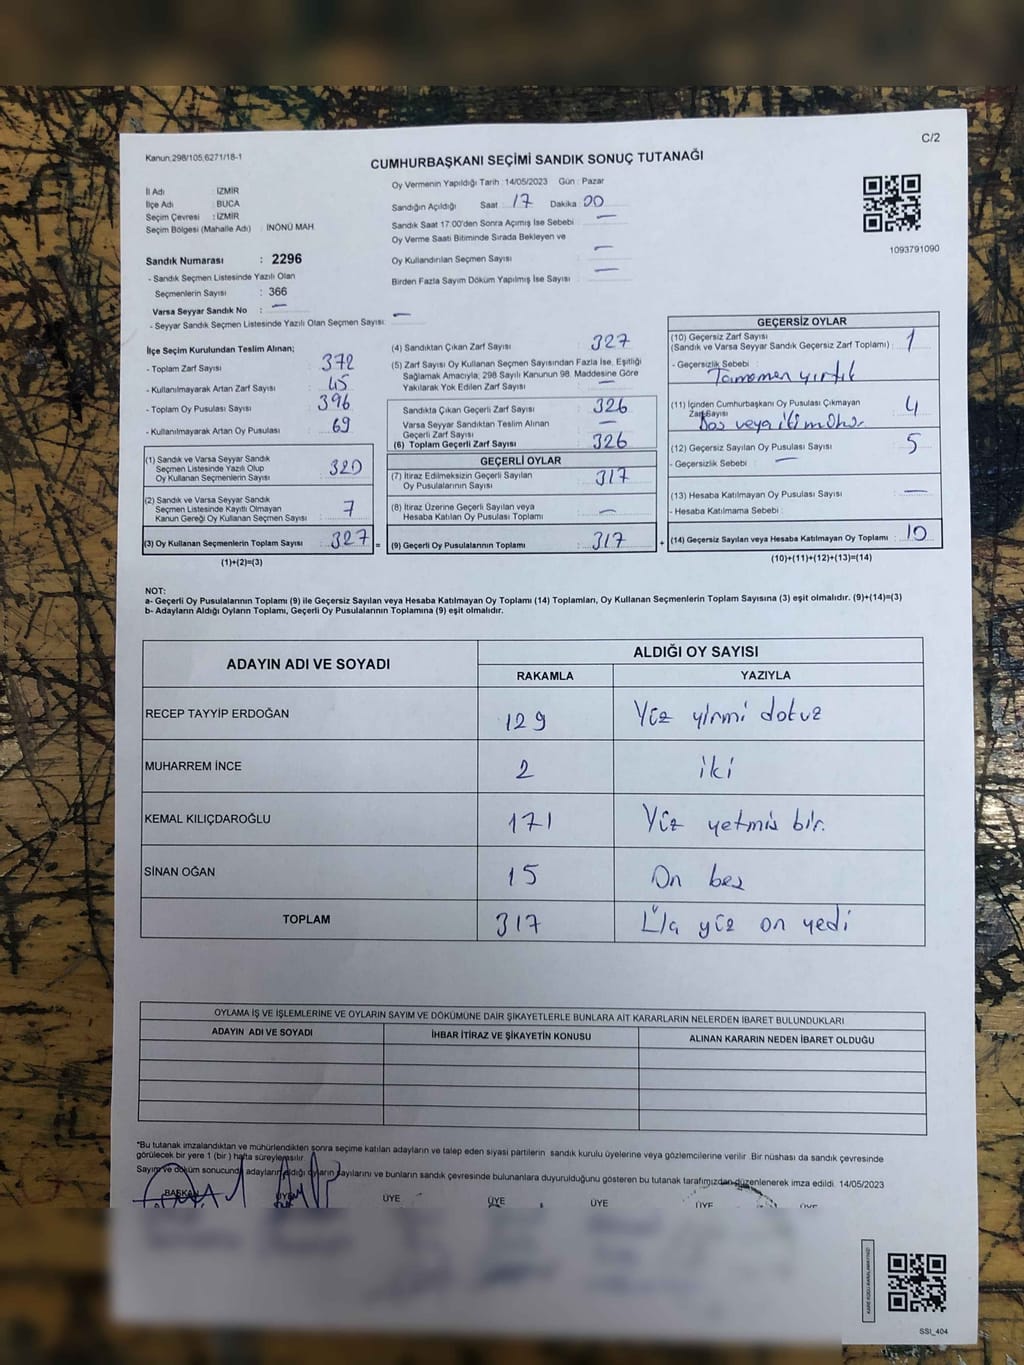 C/2
Kanun;298/105,6271/18-1
CUMHURBAŞKANI SEÇİMİ SANDIK SONUÇ TUTANAĞI
İl Adı : İZMİR
İlçe Adı : BUCA
Seçim Çevresi : İZMİR
Seçim Bölgesi (Mahalle Adı) : İNÖNÜ MAH
Oy Vermenin Yapıldığı Tarih : 14/05/2023 Gün : Pazar
Sandığın Açıldığı Saat 17 Dakika 00
Sandık Saat 17:00'den Sonra Açımış İse Sebebi : —
Oy Verme Saati Bitiminde Sırada Bekleyen ve
Oy Kullandırılan Seçmen Sayısı : —
Birden Fazla Sayım Döküm Yapılmış İse Sayısı : —
1093791090
Sandık Numarası : 2296
- Sandık Seçmen Listesinde Yazılı Olan
Seçmenlerin Sayısı : 366
Varsa Seyyar Sandık No : —
- Seyyar Sandık Seçmen Listesinde Yazılı Olan Seçmen Sayısı: —
İlçe Seçim Kurulundan Teslim Alınan;
- Toplam Zarf Sayısı : 372
- Kullanılmayarak Artan Zarf Sayısı : 45
- Toplam Oy Pusulası Sayısı : 396
- Kullanılmayarak Artan Oy Pusulası : 69
(1) Sandık ve Varsa Seyyar Sandık
Seçmen Listesinde Yazılı Olup
Oy Kullanan Seçmenlerin Sayısı : 320
(2) Sandık ve Varsa Seyyar Sandık
Seçmen Listesinde Kayıtlı Olmayan
Kanun Gereği Oy Kullanan Seçmen Sayısı : 7
(3) Oy Kullanan Seçmenlerin Toplam Sayısı : 327 =
(1)+(2)=(3)
(4) Sandıktan Çıkan Zarf Sayısı : 327
(5) Zarf Sayısı Oy Kullanan Seçmen Sayısından Fazla İse, Eşitliği
Sağlamak Amacıyla, 298 Sayılı Kanunun 98. Maddesine Göre
Yakılarak Yok Edilen Zarf Sayısı : —
Sandıkta Çıkan Geçerli Zarf Sayısı : 326
Varsa Seyyar Sandıktan Teslim Alınan
Geçerli Zarf Sayısı : —
(6) Toplam Geçerli Zarf Sayısı : 326
GEÇERLİ OYLAR
(7) İtiraz Edilmeksizin Geçerli Sayılan
Oy Pusulalarının Sayısı : 317
(8) İtiraz Üzerine Geçerli Sayılan veya
Hesaba Katılan Oy Pusulası Toplamı : —
(9) Geçerli Oy Pusulalarının Toplamı : 317 +
GEÇERSİZ OYLAR
(10) Geçersiz Zarf Sayısı
(Sandık ve Varsa Seyyar Sandık Geçersiz Zarf Toplamı) : 1
- Geçersizlik Sebebi :
Tamamen yırtık
(11) İçinden Cumhurbaşkanı Oy Pusulası Çıkmayan
Zarf Sayısı : 4
Boş veya iki
(12) Geçersiz Sayılan Oy Pusulası Sayısı : 5
- Geçersizlik Sebebi : —
(13) Hesaba Katılmayan Oy Pusulası Sayısı : —
- Hesaba Katılmama Sebebi :
(14) Geçersiz Sayılan veya Hesaba Katılmayan Oy Toplamı : 10
(10)+(11)+(12)+(13)=(14)
NOT:
a- Geçerli Oy Pusulalarının Toplamı (9) ile Geçersiz Sayılan veya Hesaba Katılmayan Oy Toplamı (14) Toplamları, Oy Kullanan Seçmenlerin Toplam Sayısına (3) eşit olmalıdır. (9)+(14)=(3)
b- Adayların Aldığı Oyların Toplamı, Geçerli Oy Pusulalarının Toplamına (9) eşit olmalıdır.
ADAYIN ADI VE SOYADI ALDIĞI OY SAYISI
RAKAMLA YAZIYLA
RECEP TAYYİP ERDOĞAN 129 Yüz yirmi dokuz
MUHARREM İNCE 2 iki
KEMAL KILIÇDAROĞLU 171 Yüz yetmis bir.
SİNAN OĞAN 15 On beş
TOPLAM 317 Üç yüz on yedi
OYLAMA İŞ VE İŞLEMLERİNE VE OYLARIN SAYIM VE DÖKÜMÜNE DAİR ŞİKAYETLERLE BUNLARA AİT KARARLARIN NELERDEN İBARET BULUNDUKLARI
ADAYIN ADI VE SOYADI İHBAR İTİRAZ VE ŞİKAYETİN KONUSU ALINAN KARARIN NEDEN İBARET OLDUĞU
*Bu tutanak imzalandıktan ve mühürlendikten sonra seçime katılan adayların ve talep eden siyasi partilerin sandık kurulu üyelerine veya gözlemcilerine verilir. Bir nüshası da sandık çevresinde
görülecek bir yere 1 (bir) hafta süreyle asılır.
Sayım ve döküm sonucunda adayların aldığı oyların sayılarını ve bunların sandık çevresinde bulunanlara duyurulduğunu gösteren bu tutanak tarafımızdan düzenlenerek imza edildi. 14/05/2023
BAŞKAN ÜYE ÜYE ÜYE ÜYE ÜYE ÜYE
SSI_404